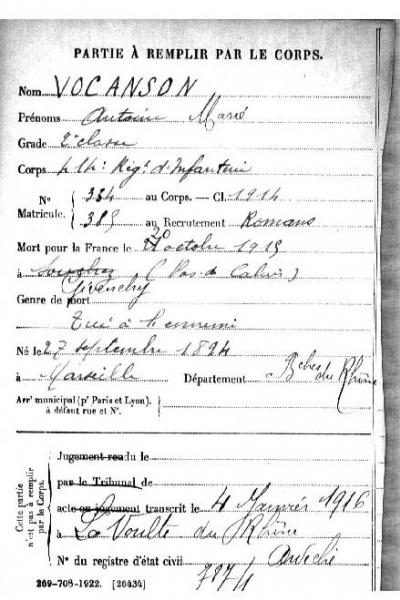 PARTIE À REMPLIR PAR LE CORPS.
Nom VOCANSON
Prénoms Antoine Marie
Grade 2e classe
Corps 414e Régt d'Infanterie
N° Matricule. { 384 au Corps. — Cl. 1914
385 au Recrutement Romans
Mort pour la France le 20 octobre 1915
à Souchez (Pas de Calais)
Givenchy
Genre de mort
Tué à l'ennemi
Né le 27 septembre 1894
à Marseille Département Bches du Rhône
Arrt municipal (pr Paris et Lyon),
à défaut rue et N°.
Cette partie n'est pas à remplir par le Corps.
Jugement rendu le
par le Tribunal de
acte ou jugement transcrit le 4 Janvier 1916
à La Voulte du Rhône
Ardèche
N° du registre d'état civil
787/1
269-708-1922. [26434]